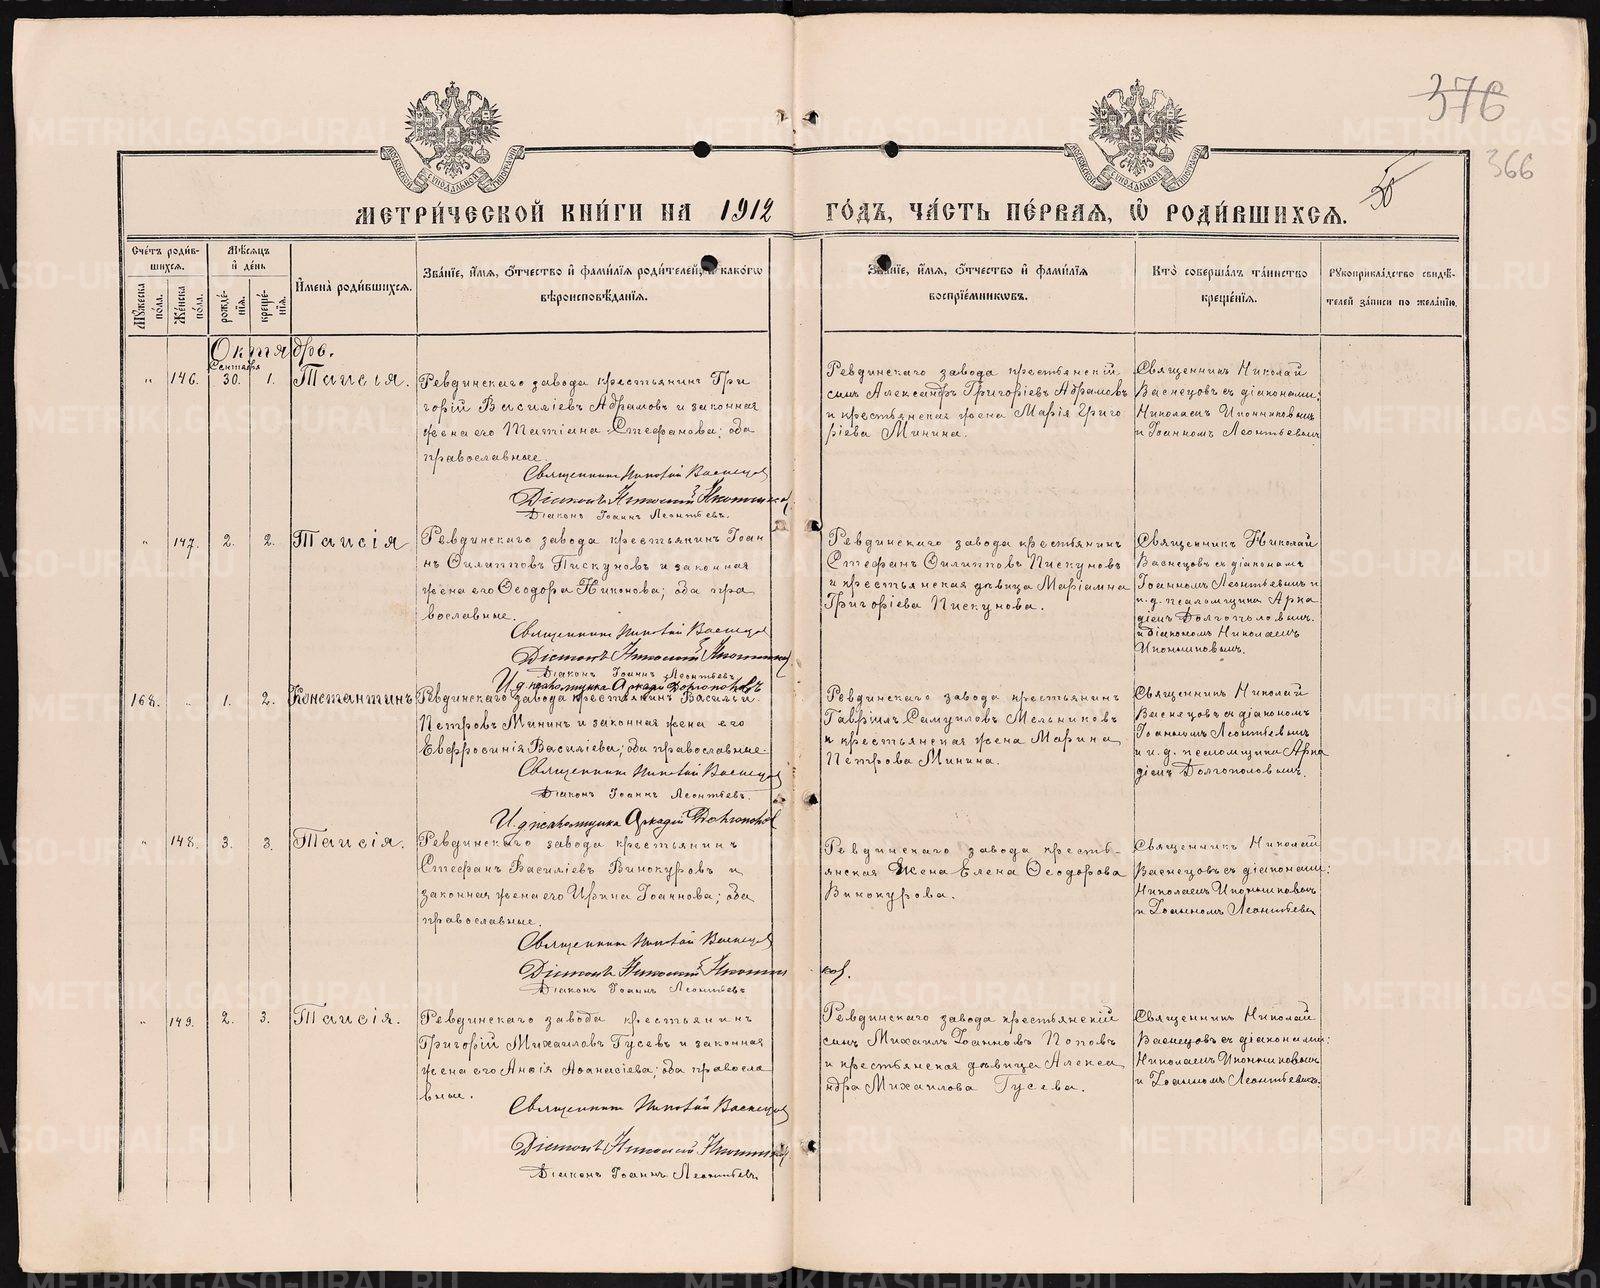 376
366
МЕТРИ́ЧЕСКОЙ КНИ́ГИ НА 1912 ГО́ДЪ, ЧА́СТЬ ПЕ́РВАЯ, Ѽ РОДИ́ВШИХСЯ.
Сче́тъ роди́в-
шихся.
Мѣ́сяцъ
и҆ де́нь
И҆мена̀ роди́вшихся.
Зва́нїе, и҆́мя, ѻ҆́тчество и҆ фами́лїя роди́телей, и҆ како́гѡ
вѣроисповѣ́данїя.
Зва́нїе, и҆́мя, ѻ҆́тчество и҆ фами́лїя
воспрїе́мникѡвъ.
Кто̀ соверша́лъ та́инство
креще́нїя.
Рꙋкоприкла́дство свидѣ́-
телей за́писи по жела́нїю.
Мꙋ́жеска
по́ла.
Же́нска
по́ла.
рожде́-
нїя.
креще́-
нїя.
Октябрь.
Сентября
„ 146. 30. 1. Таисія.
Ревдинскаго завода крестьянинъ Гри
горій Василіевъ Абрамовъ и законная
жена его Татіана Стефанова; оба
православные.
Священникъ Николай Васнецов
Діаконъ Николай Иконников
Діаконъ Іоаннъ Леонтьевъ.
Ревдинскаго завода крестьянскій
сынъ Александръ Григоріевъ Абрамовъ
и крестьянская жена Марія Григо
ріева Минина.
Священникъ Николай
Васнецовъ съ діаконами:
Николаемъ Иконниковымъ
и Іоанномъ Леонтьевымъ
„ 147. 2. 2. Таисія
Ревдинскаго завода крестьянинъ Іоан
нъ Филипповъ Пискуновъ и законная
жена его Ѳеодора Никонова; оба пра
вославные.
Священникъ Николай Васнецов
Діаконъ Николай Иконников
Діаконъ Іоаннъ Леонтьевъ
И.д. псаломщика Аркадій Долгополовъ
Ревдинскаго завода крестьянинъ
Стефанъ Филипповъ Пискуновъ
и крестьянская дѣвица Маріамна
Григоріева Пискунова.
Священникъ Николай
Васнецовъ съ діакономъ
Іоанномъ Леонтьевымъ и
и.д. псаломщика Арка
діемъ Долгополовымъ.
и діакономъ Николаемъ
Иконниковымъ.
168. „ 1. 2. Константинъ
Ревдинскаго завода крестьянинъ Василій
Петровъ Мининъ и законная жена его
Евфросинія Василіева; оба православные.
Священникъ Николай Васнецов
Діаконъ Іоаннъ Леонтьевъ.
И.д. псаломщика Аркадій Долгополов
Ревдинскаго завода крестьянинъ
Гавріилъ Самуиловъ Мельниковъ
и крестьянская жена Марина
Петрова Минина.
Священникъ Николай
Васнецовъ съ діакономъ
Іоанномъ Леонтьевымъ
и и.д. псаломщика Арка
діемъ Долгополовымъ.
„ 148. 3. 3. Таисія.
Ревдинскаго завода крестьянинъ
Стефанъ Василіевъ Винокуровъ и
законная жена его Ирина Іоаннова; оба
православные.
Священникъ Николай Васнецов
Діаконъ Николай Иконников.
Діаконъ Іоаннъ Леонтьевъ
Ревдинскаго завода кресть-
янская жена Елена Ѳеодорова
Винокурова.
Священникъ Николай
Васнецовъ съ діаконами:
Николаемъ Иконниковымъ
и Іоанномъ Леонтьевым
„ 149. 2. 3. Таисія.
Ревдинскаго завода крестьянинъ
Григорій Михаиловъ Гусевъ и законная
жена его Анѳія Аѳанасіева; оба правосла
вные.
Священникъ Николай Васнецов
Діаконъ Николай Иконников
Діаконъ Іоаннъ Леонтьевъ.
Ревдинскаго завода крестьянскій
сынъ Михаилъ Іоанновъ Поповъ
и крестьянская дѣвица Алекса
ндра Михаилова Гусева.
Священникъ Николай
Васнецовъ съ діаконами:
Николаемъ Иконниковымъ
и Іоанномъ Леонтьевымъ.
METRIKI.GASO-URAL.RU